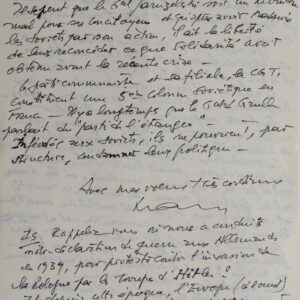 J'espère que le Gal Jaruzelski soit un
mal pour ses concitoyens et qu'après avoir
les Soviets par son action, il ait la liberté
de leur reconcéder ce que Solidarité avait
obtenu avant la récente crise -
Le parti communiste et sa filiale, la CGT,
constituent une 5ème colonne Soviétique en
France - Il y a longtemps que le Gal de Gaulle
parlait du "parti de l'étranger" -
Inféodés aux Soviets, ils ne pouvaient, par
structure, condamner leur politique -
Avec mes voeux très cordiaux
PS. Rappelez vous où nous a conduits
notre déclaration de guerre aux Allemands
en 1939, pour protester contre l'invasion de
la Pologne par les troupes d'Hitler ?
Et depuis cette époque, l'Europe